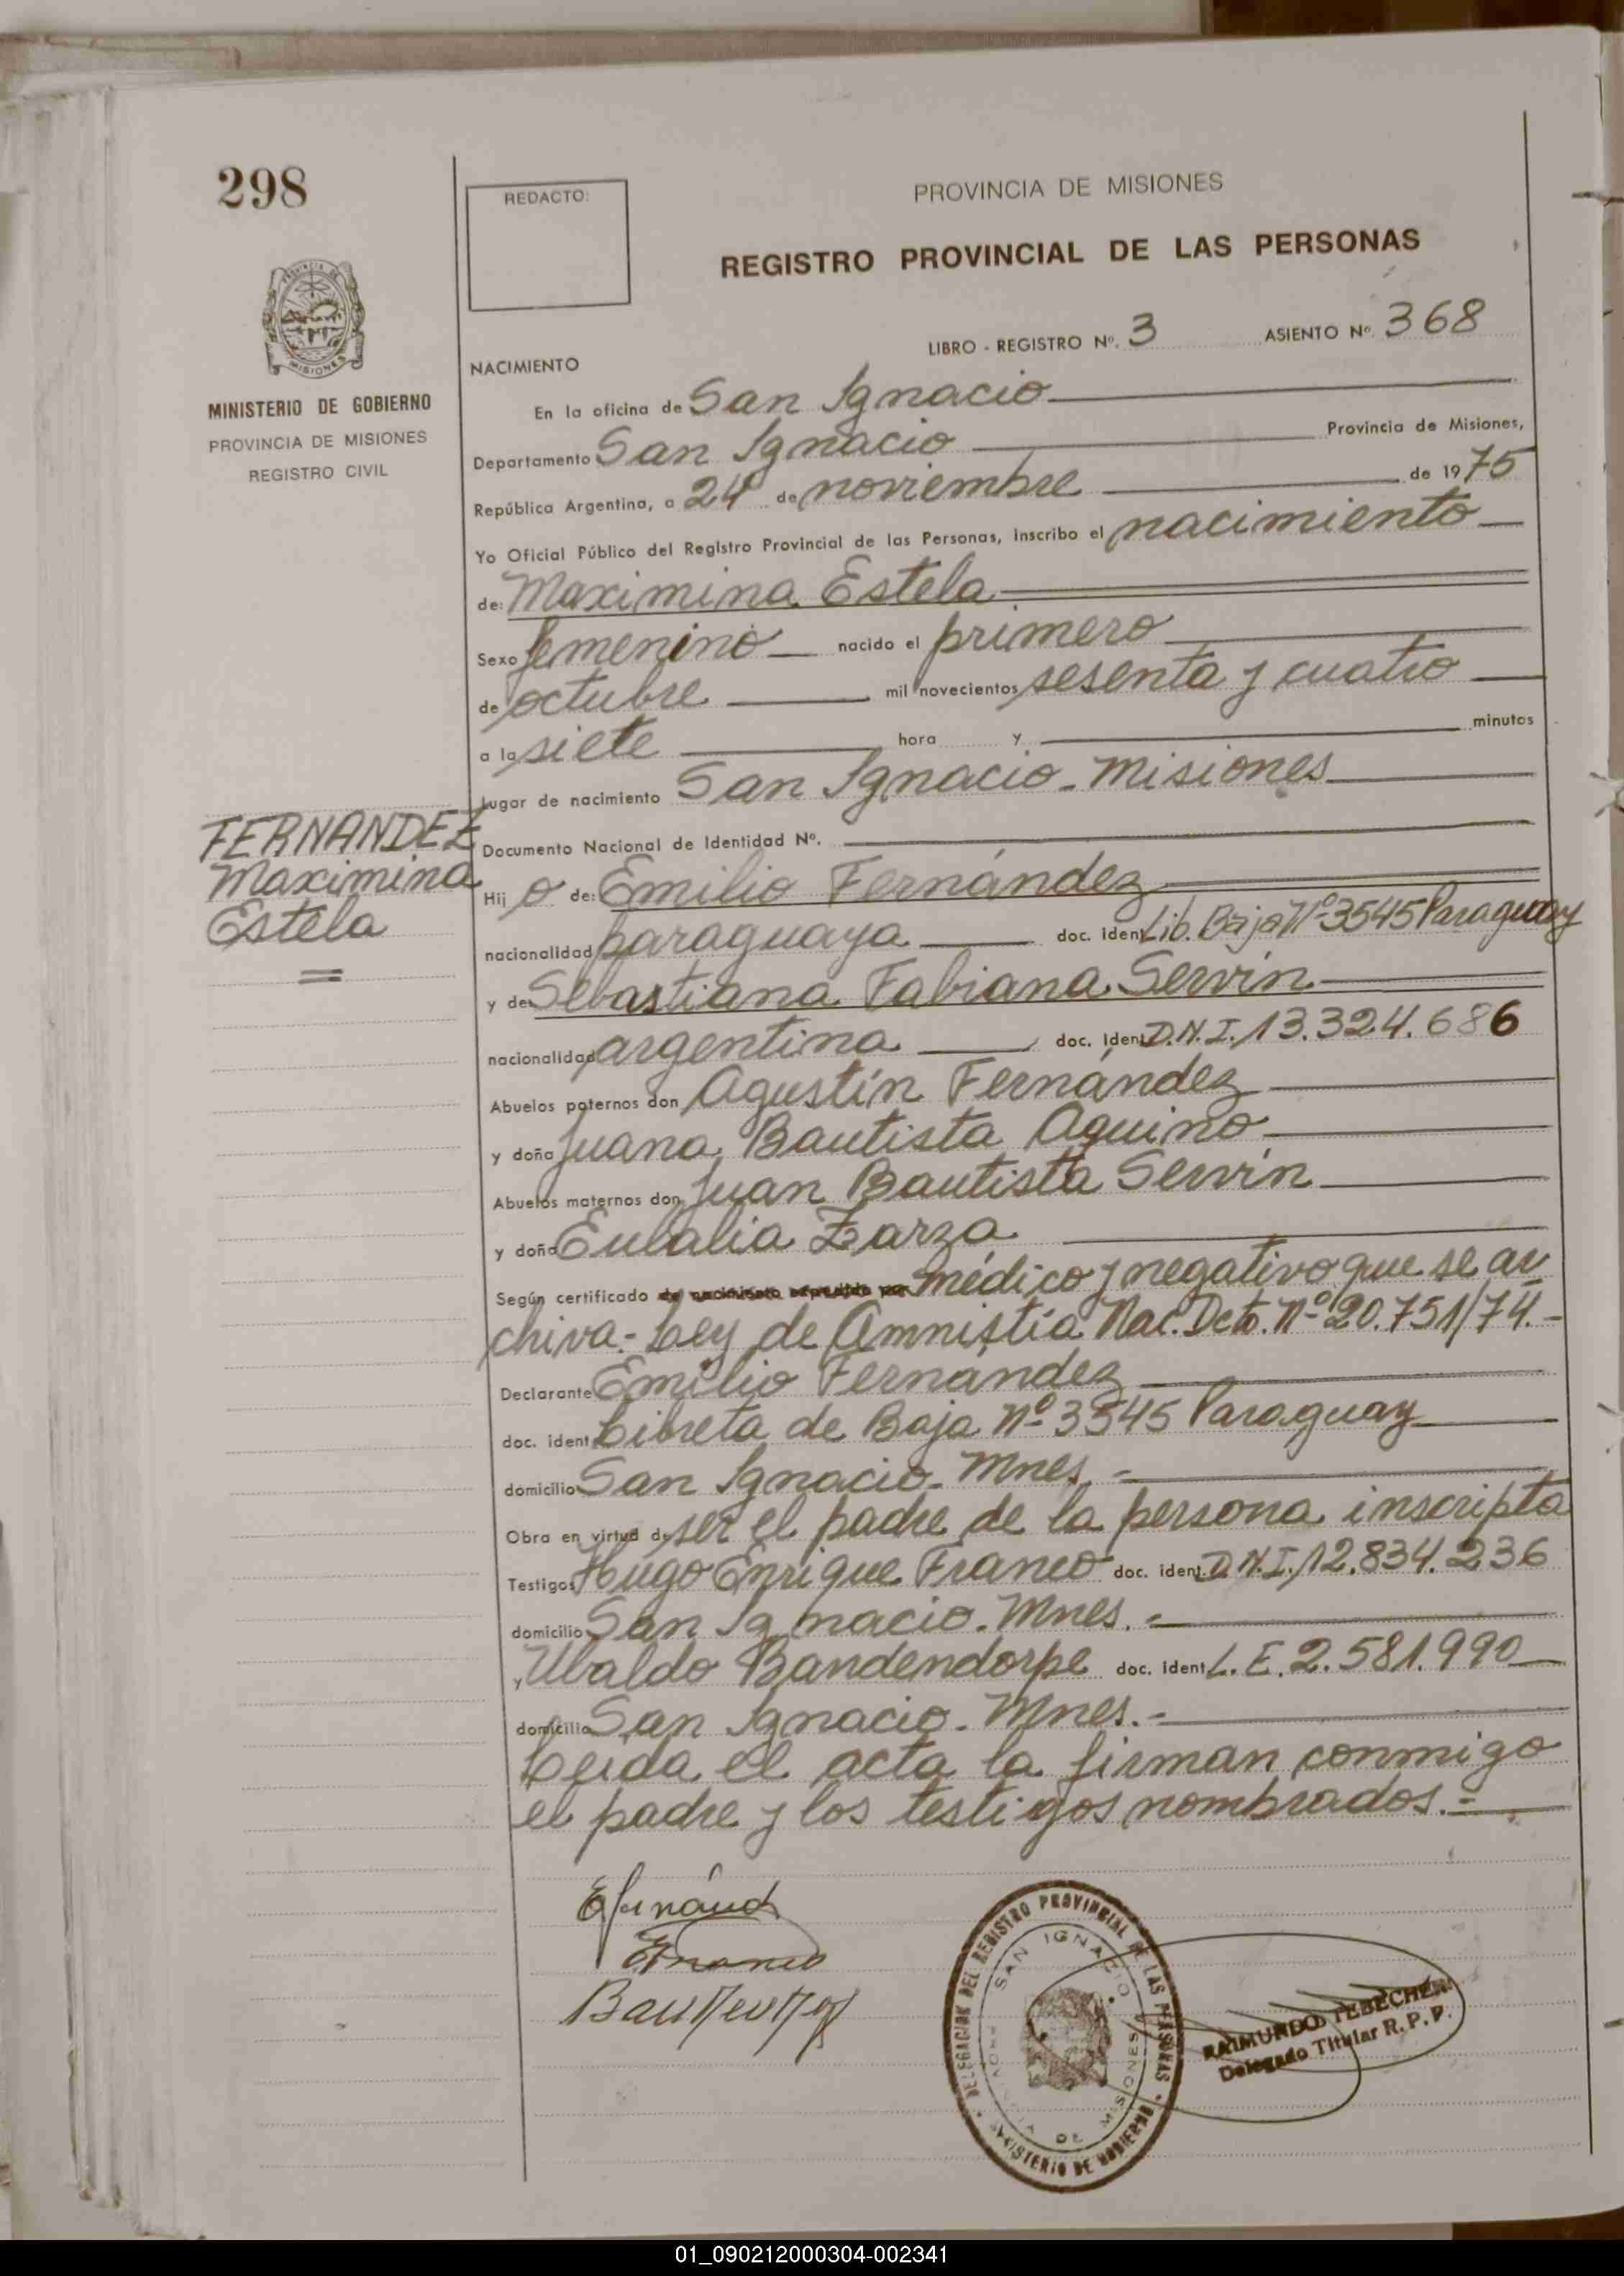 298
REDACTO:
PROVINCIA DE MISIONES
REGISTRO PROVINCIAL DE LAS PERSONAS
LIBRO - REGISTRO Nº. 3 ASIENTO Nº. 368
MISIONES
MINISTERIO DE GOBIERNO
PROVINCIA DE MISIONES
REGISTRO CIVIL
NACIMIENTO
En la oficina de San Ignacio
Departamento San Ignacio Provincia de Misiones,
República Argentina, a 24 de noviembre de 1975
Yo Oficial Público del Registro Provincial de las Personas, inscribo el nacimiento
de: Maximina Estela
Sexo femenino nacido el primero
de octubre mil novecientos sesenta y cuatro
a la siete hora y minutos
Lugar de nacimiento San Ignacio - Misiones
FERNANDEZ
Maximina
Estela
Documento Nacional de Identidad Nº.
Hij o de: Emilio Fernández
nacionalidad paraguaya doc. ident. Lib. Baja Nº 3545 Paraguay
y de Sebastiana Fabiana Servín
nacionalidad argentina doc. ident. D.N.I. 13.324.686
Abuelos paternos don Agustín Fernández
y doña Juana Bautista Aquino
Abuelos maternos don Juan Bautista Servín
y doña Eulalia Zarza
Según certificado de nacimiento expedido por médico y negativo que se ar
chiva.- Ley de Amnistía Nac. Dcto. Nº 20.751/74.-
Declarante Emilio Fernandez
doc. ident. Libreta de Baja Nº 3545 Paraguay
domicilio San Ignacio - Mnes.-
Obra en virtud de ser el padre de la persona inscripta
Testigos Hugo Enrique Franco doc. ident. D.N.I. 12.834.236
domicilio San Ignacio. Mnes.-
y Ubaldo Bandendorpe doc. ident. L.E. 2.581.990
domicilio San Ignacio - Mnes.-
Leida el acta la firman conmigo
el padre y los testigos nombrados.=
DELEGACION DEL REGISTRO PROVINCIAL DE LAS PERSONAS
SAN IGNACIO
DE MISIONES
MINISTERIO DE GOBIERNO
RAIMUNDO TEBECHERI
Delegado Titular R. P. P.
01_090212000304-002341